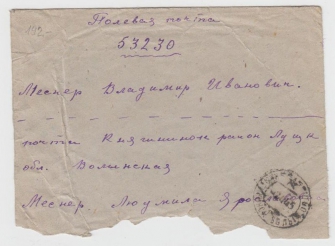 112-
Полевая почта
53230
Меснер Владимир Иванович.
почта Княгининок район Луцк
обл. Волинская
Меснер Людмила